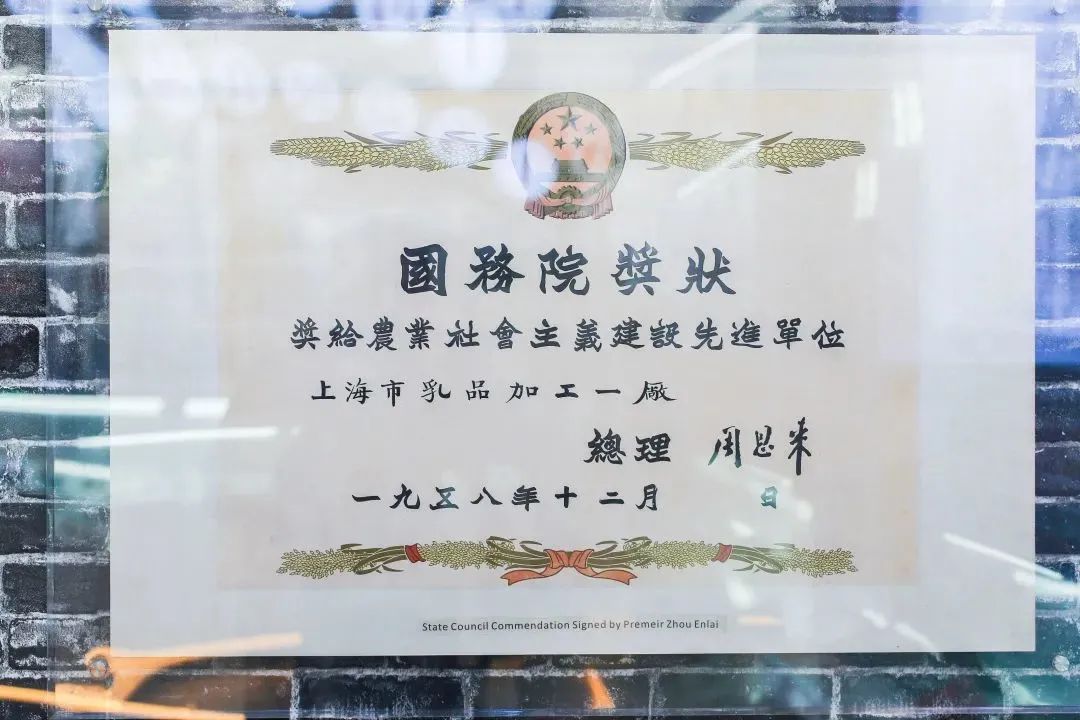 國務院獎狀
獎給農業社會主義建設先進單位
上海市乳品加工一廠
總理 周恩来
一九五八年十二月 日
State Council Commendation Signed by Premeir Zhou Enlai